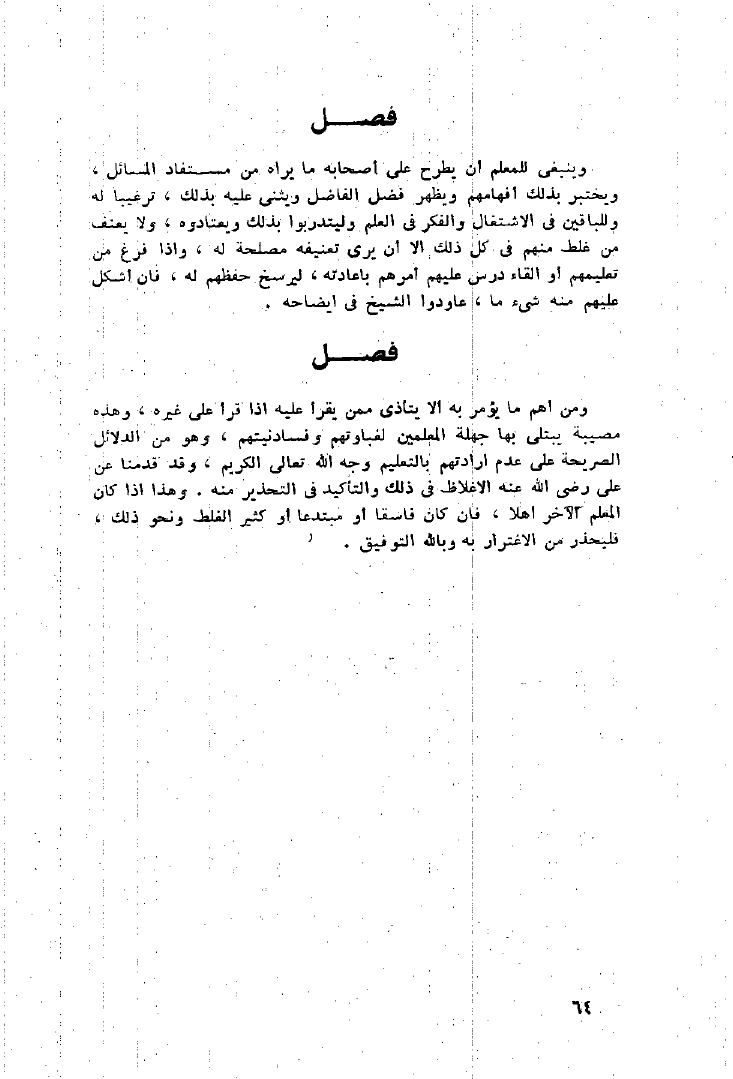 فصـــــل
وينبغى للمعلم أن يطرح على أصحابه ما يراه من مســتفاد المسائل ،
ويختبر بذلك أفهامهم ويظهر فضل الفاضل ويثنى عليه بذلك ، ترغيبا له
وللباقين فى الاشتغال والفكر فى العلم وليتدربوا بذلك ويعتادوه ، ولا يعنف
من غلط منهم فى كل ذلك الا أن يرى تعنيفه مصلحة له ، واذا فرغ من
تعليمهم أو القاء درس عليهم أمرهم باعادته ، ليرسخ حفظهم له ، فان أشكل
عليهم منه شىء ما ، عاودوا الشيخ فى ايضاحه .
فصـــــل
ومن أهم ما يؤمر به ألا يتأذى ممن يقرأ عليه اذا قرأ على غيره ، وهذه
مصيبة يبتلى بها جهلة المعلمين لغباوتهم وفسادنيتهم ، وهو من الدلائل
الصريحة على عدم ارادتهم بالتعليم وجه الله تعالى الكريم ، وقد قدمنا عن
على رضى الله عنه الاغلاظ فى ذلك والتأكيد فى التحذير منه . وهذا اذا كان
المعلم الآخر أهلا ، فان كان فاسقا أو مبتدعا أو كثير الغلط ونحو ذلك ،
فليحذر من الاغترار به وبالله التوفيق .
٦٤